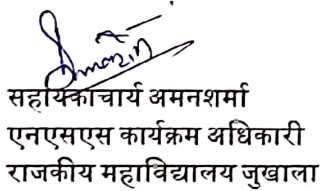 सहायिकाचार्य अमनशर्मा
एनएसएस कार्यक्रम अधिकारी
राजकीय महाविद्यालय जुखाला